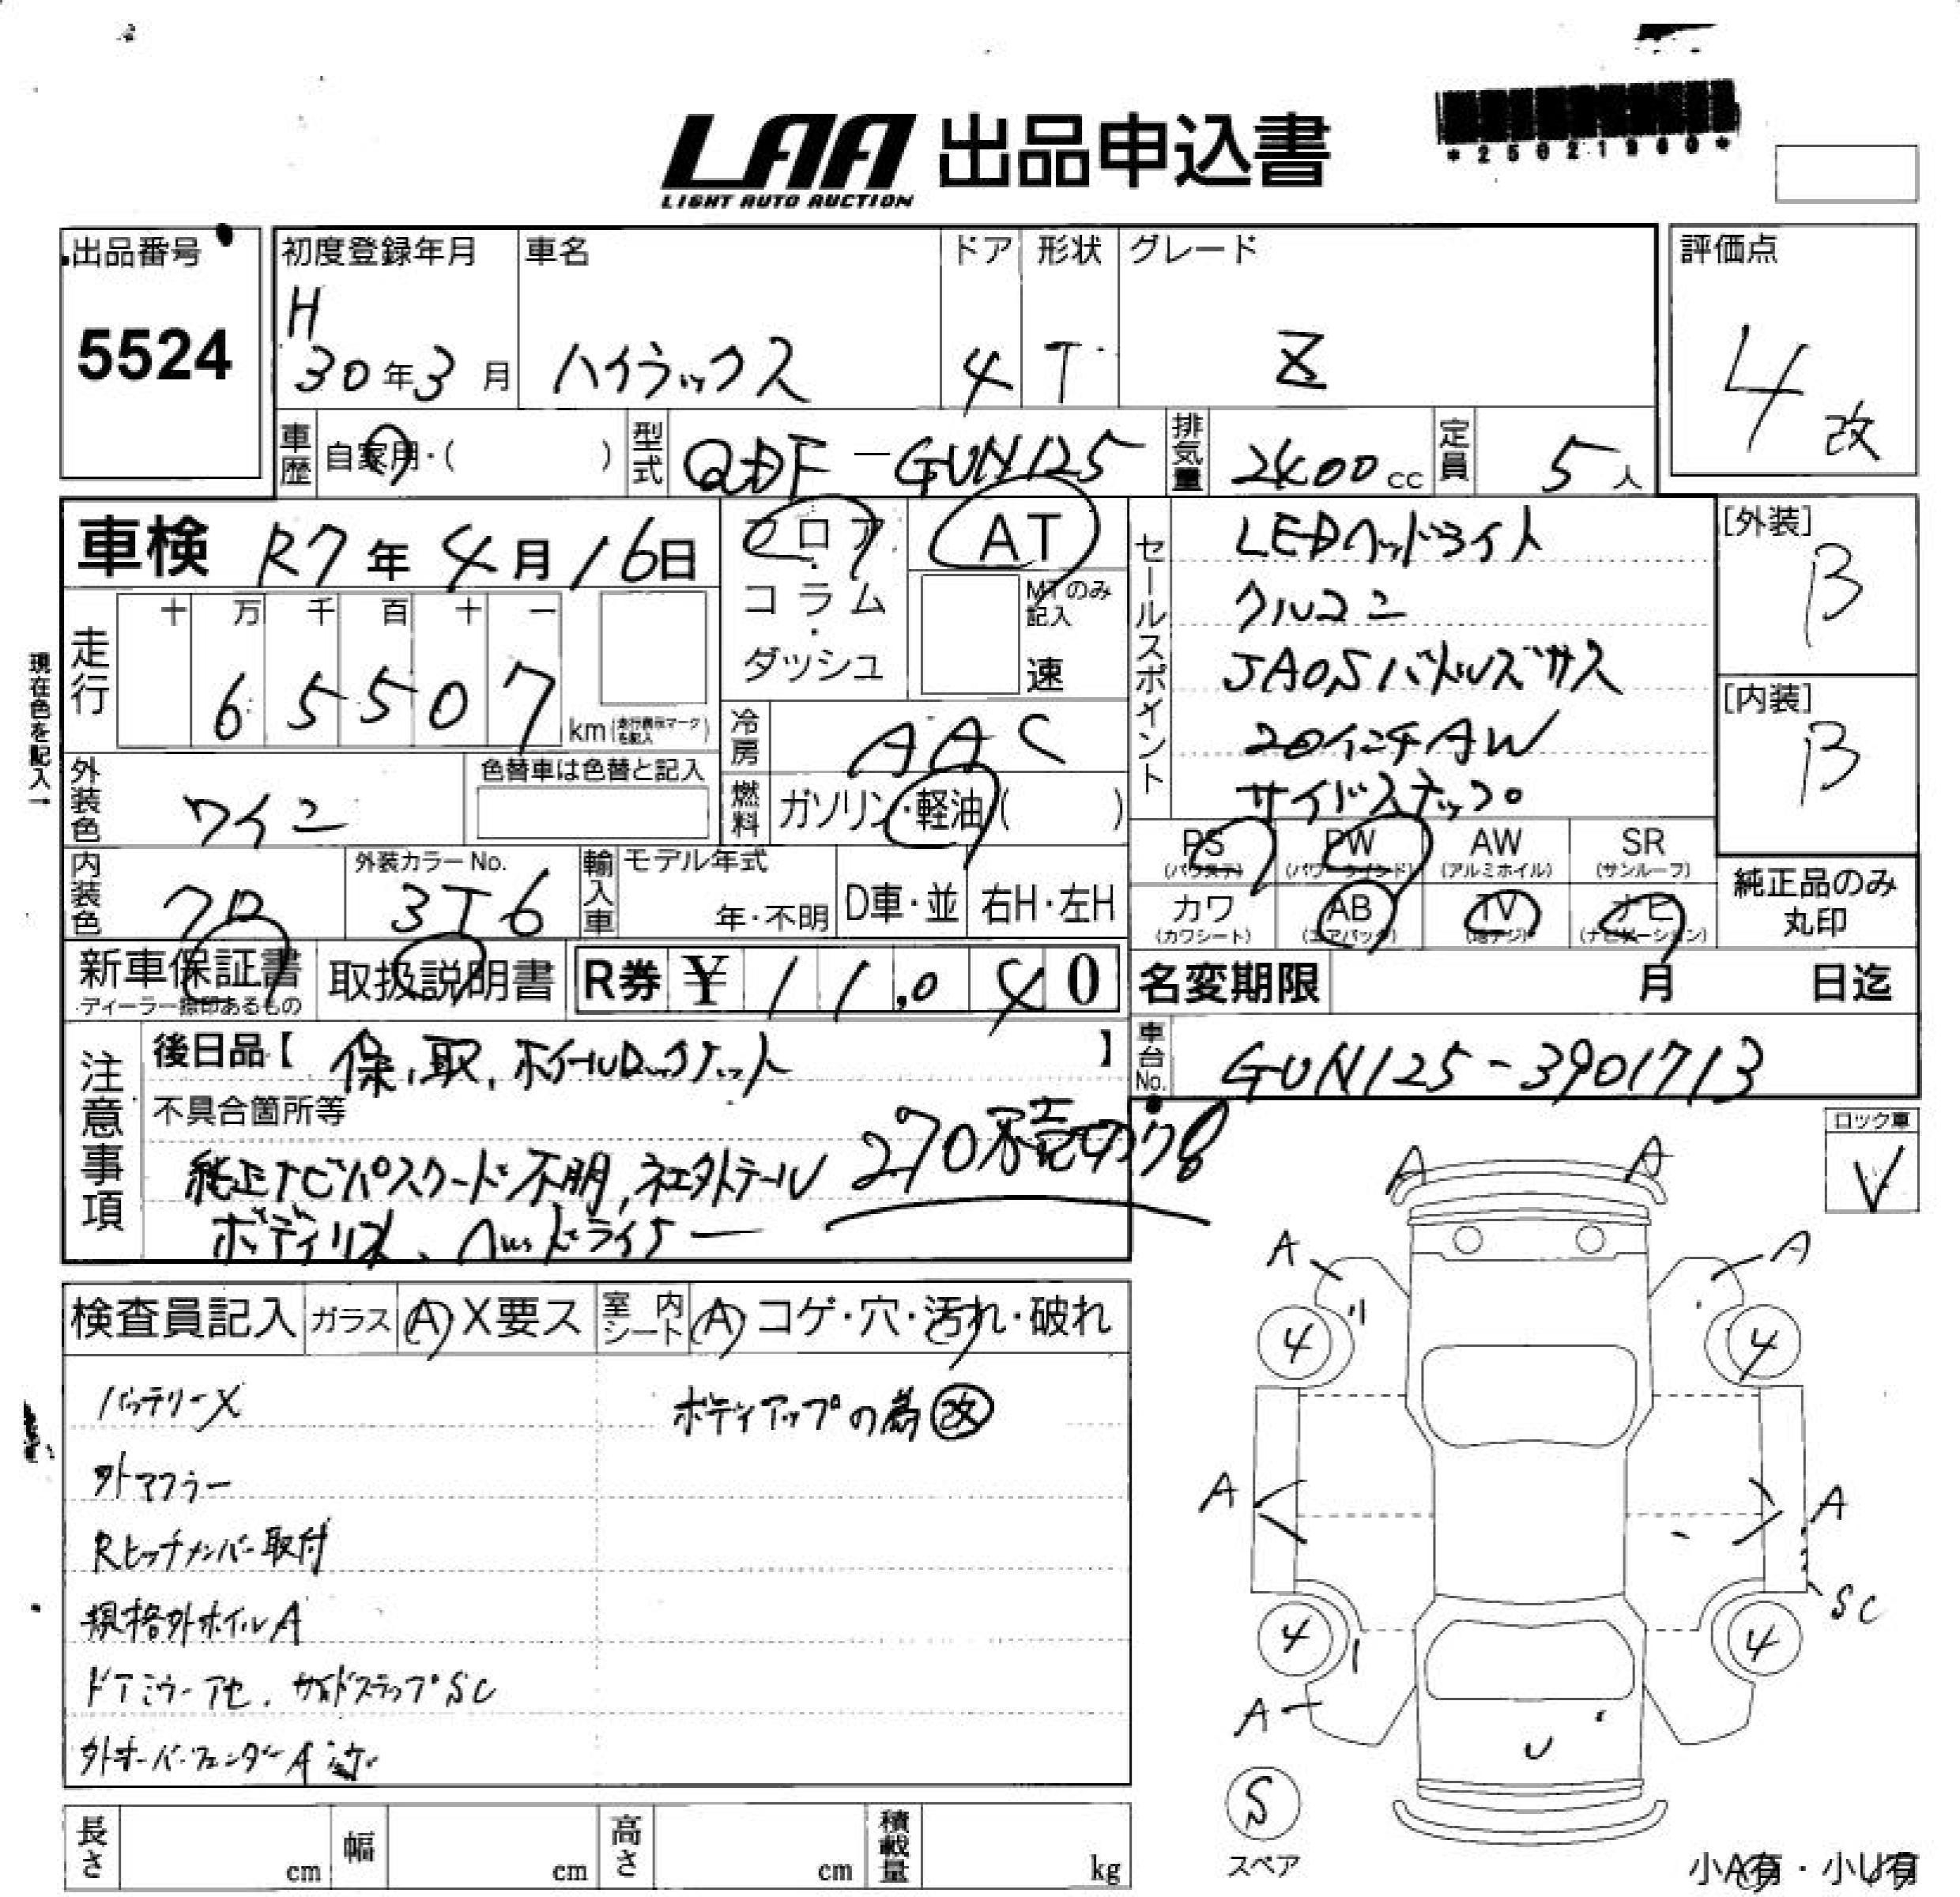 LAA 出品申込書
LIGHT AUTO AUCTION
*25021960*
出品番号
5524
初度登録年月
H
30年3月
車名
ハイラックス
ドア
4
形状
T
グレード
Z
評価点
4 改
車歴 自家用・( )
型式 QDF-GUN125
排気量 2400cc
定員 5人
車検 R7年4月16日
フロア・コラム・ダッシュ
AT
MTのみ記入
速
走行
十 万 千 百 十 一
6 5 5 0 7 km(走行表示マークを記入)
現在色を記入→
外装色 ワイン
色替車は色替と記入
冷房 AAC
燃料 ガソリン・軽油( )
内装色 クロ
外装カラーNo. 3T6
輸入車
モデル年式
年・不明
D車・並
右H・左H
セールスポイント
LEDヘッドライト
クルコン
JAOSバトルズサス
20インチAW
サイドステップ。
[外装]
B
[内装]
B
PS (パワステ)
PW (パワーウインド)
AW (アルミホイル)
SR (サンルーフ)
カワ (カワシート)
AB (エアバック)
TV (地デジ)
ナビ (ナビゲーション)
純正品のみ丸印
新車保証書
ディーラー捺印あるもの
取扱説明書
R券 ¥ 11,040
名変期限 月 日迄
車台No. GUN125-3901713
注意事項
後日品【 保、取、ホイールロックナット 】
不具合箇所等
純正ナビパスワード不明、社外テール
ボディリフト、ヘッドライナー
ロック車
V
検査員記入
ガラス A X要ス
室内シート A コゲ・穴・汚れ・破れ
バッテリーX
ボディアップの為改
外マフラー
Rヒッチメンバー取付
規格外ホイルA
ドアミラーアセ、サイドステップSC
外オーバーフェンダーA
A A
A A
4 4
A A
SC
4 4
A
U
S
スペア
長さ cm
幅 cm
高さ cm
積載量 kg
小A有・小U有